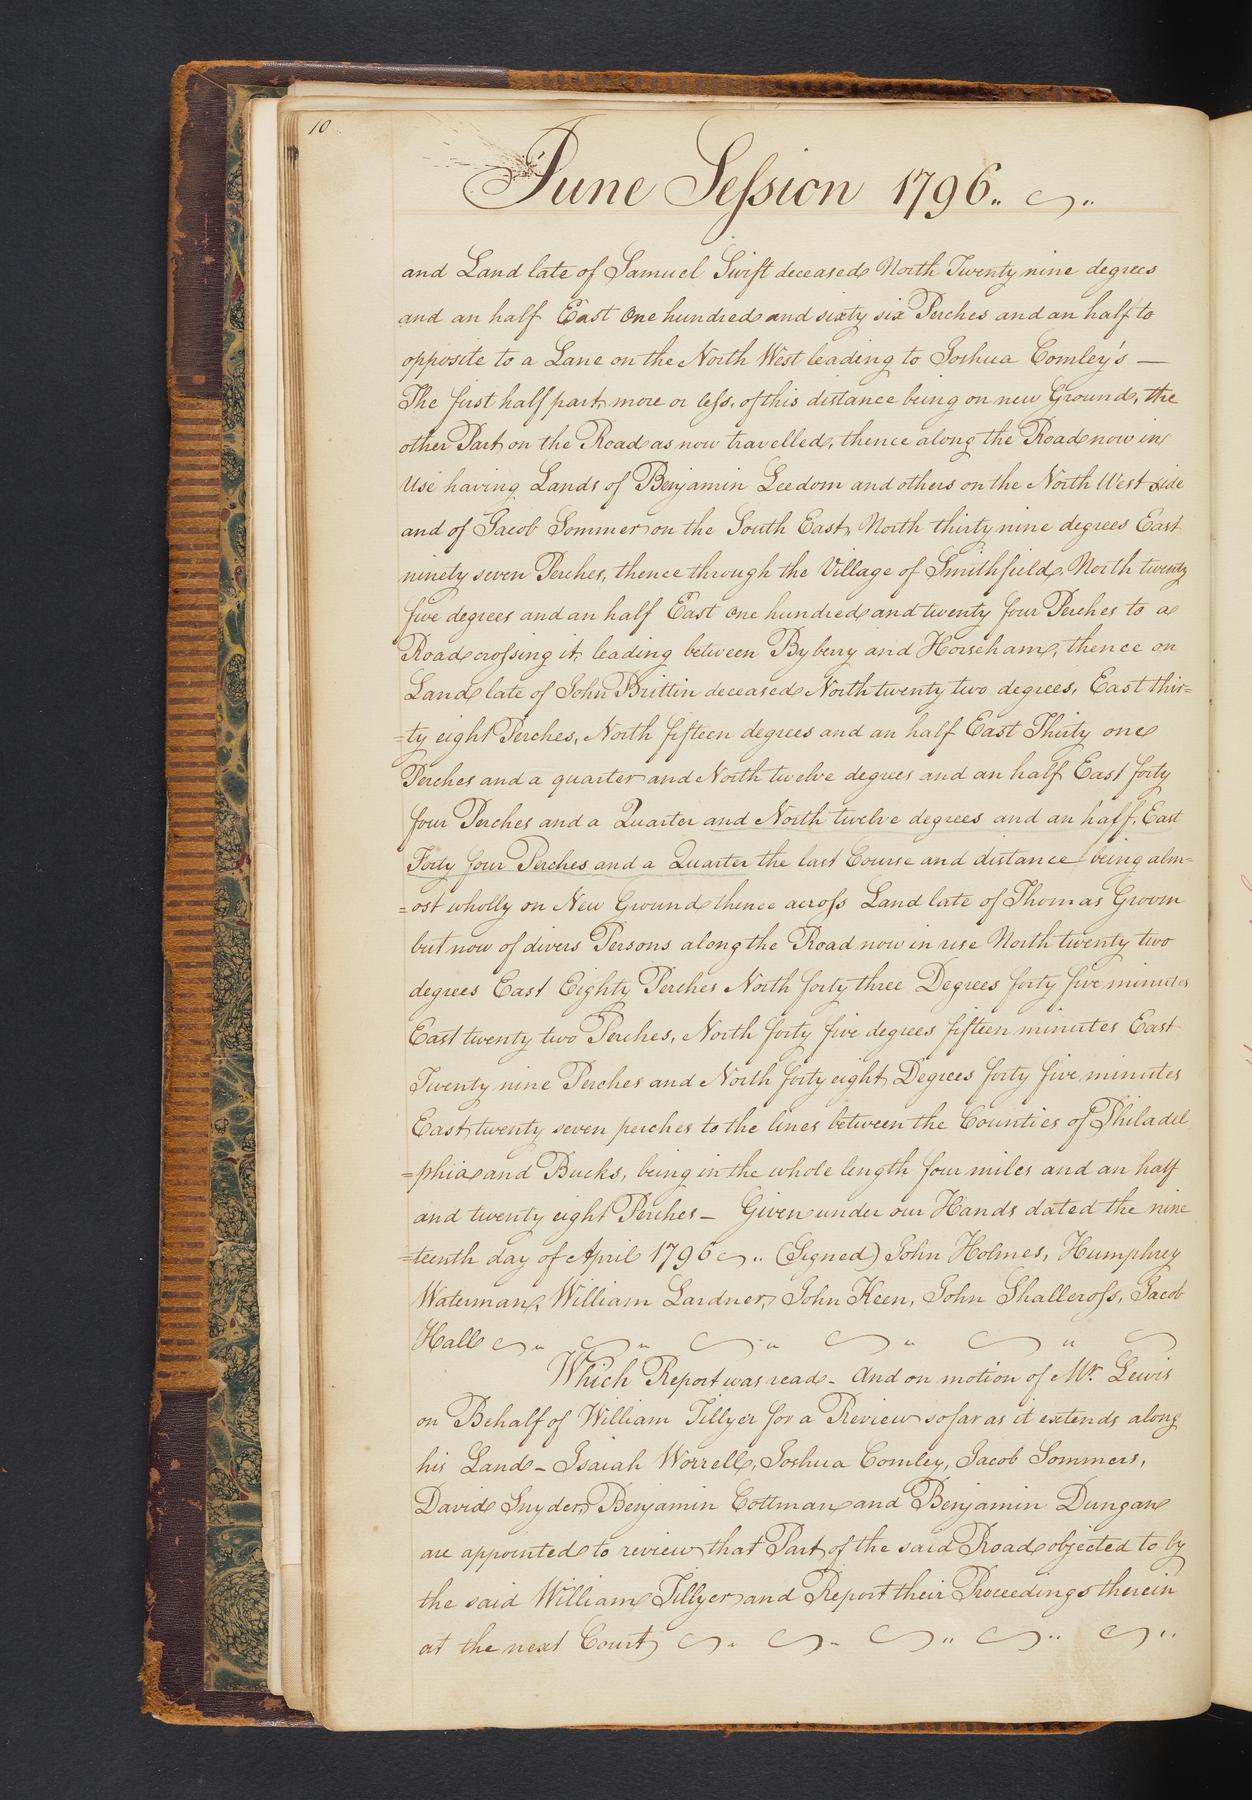 10
June Session 1796
and Land late of Samuel Swift deceased North Twenty nine degrees
and an half East One hundred and sixty six Perches and an half to
opposite to a Lane on the North West leading to Joshua Comley's —
The first half part, more or less, of this distance being on new Ground, the
other Part on the Road as now travelled, thence along the Road now in
Use having Lands of Benjamin Leedom and others on the North West side
and of Jacob Sommer on the South East, North thirty nine degrees East
ninety seven Perches, thence through the Village of Smithfield, North twenty
five degrees and an half East One hundred and twenty four Perches to a
Road crossing it, leading between Byberry and Horseham, thence on
Land late of John Brittin deceased North twenty two degrees, East thir=
=ty eight Perches, North fifteen degrees and an half East Thirty one
Perches and a quarter and North twelve degrees and an half East forty
four Perches and a Quarter and North twelve degrees and an half, East
Forty four Perches and a Quarter the last Course and distance being alm=
=ost wholly on New Ground thence across Land late of Thomas Groom
but now of divers Persons along the Road now in use North twenty two
degrees East Eighty Perches North forty three Degrees forty five minutes
East twenty two Perches, North forty five degrees fifteen minutes East
Twenty nine Perches and North forty eight Degrees forty five minutes
East twenty seven perches to the lines between the Counties of Philadel
=phia and Bucks, being in the whole length four miles and an half
and twenty eight Perches — Given under our Hands dated the nine
=teenth day of April 1796 .. (Signed) John Holmes, Humphrey
Waterman, William Lardner, John Keen, John Shallcross, Jacob
Hall
Which Report was read - And on motion of Mr. Lewis
on Behalf of William Tillyer for a Review so far as it extends along
his Land - Isaiah Worrell, Joshua Comley, Jacob Sommers,
David Snyder, Benjamin Cottman and Benjamin Dungan
are appointed to review that Part of the said Road objected to by
the said William Tillyer and Report their Proceedings therein
at the next Court